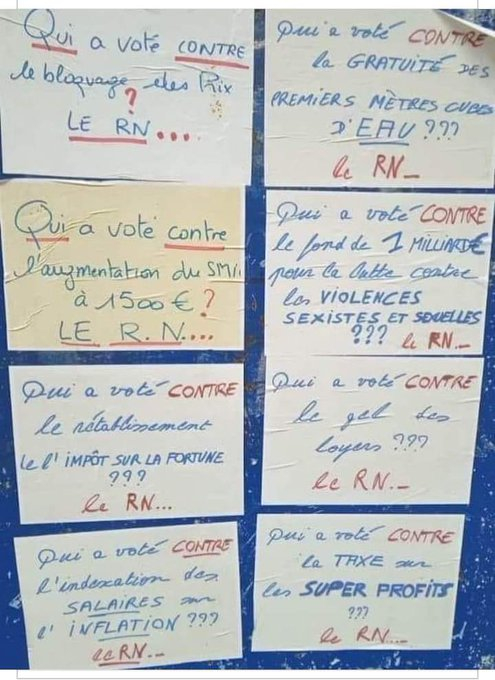 Qui a voté CONTRE
le bloquage des Prix
?
LE RN....
Qui a voté CONTRE
la GRATUITÉ DES
PREMIERS MÈTRES CUBES
D'EAU ???
le RN_
Qui a voté contre
l'augmentation du SMIC
à 1500 € ?
LE R.N...
Qui a voté CONTRE
le fond de 1 MILLIARD€
pour la lutte contre
les VIOLENCES
SEXISTES ET SEXUELLES
??? le RN_
Qui a voté CONTRE
le rétablissement
de l'IMPÔT SUR LA FORTUNE
???
le RN...
Qui a voté CONTRE
le gel des
loyers ???
le RN._
Qui a voté CONTRE
l'indexation des
SALAIRES sur
l'INFLATION ???
le RN._
Qui a voté CONTRE
la TAXE sur
les SUPER PROFITS
???
le RN...